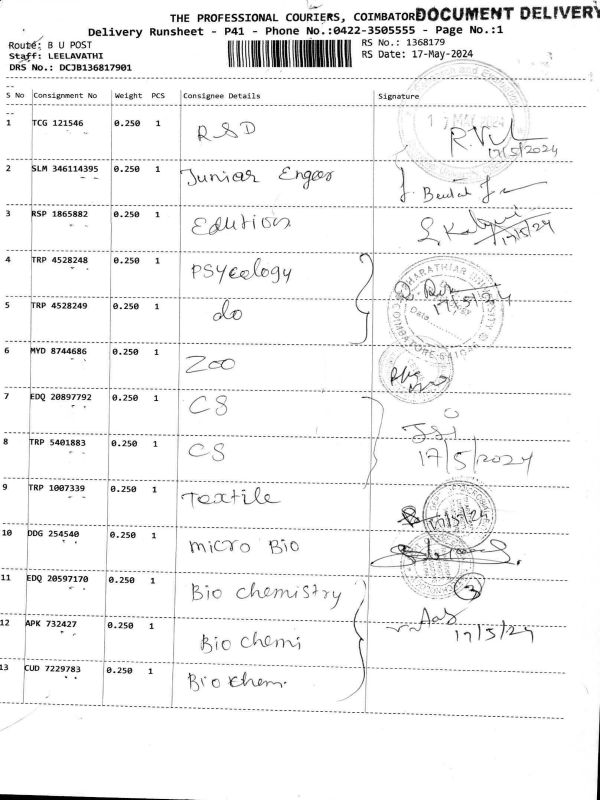 DOCUMENT DELIVERY
THE PROFESSIONAL COURIERS, COIMBATOR
Delivery Runsheet - P41 - Phone No.:0422-3505555 - Page No.:1
Route: B U POST RS No.: 1368179
Staff: LEELAVATHI RS Date: 17-May-2024
DRS No.: DCJB136817901
S No Consignment No Weight PCS Consignee Details Signature
1 TCG 121546 0.250 1 RSD 17/5/2024
2 SLM 346114395 0.250 1 Junior Engeer
3 RSP 1865882 0.250 1 Edution 17/5/24
4 TRP 4528248 0.250 1 PSycology 17/5/24
5 TRP 4528249 0.250 1 do
BHARATHIAR UNIVERSITY
COIMBATORE-641046
6 MYD 8744686 0.250 1 Zoo
7 EDQ 20897792 0.250 1 CS
8 TRP 5401883 0.250 1 CS 17/5/2024
9 TRP 1007339 0.250 1 Textile 17/5/24
10 DDG 254540 0.250 1 micro Bio
11 EDQ 20597170 0.250 1 Bio chemistry 3
12 APK 732427 0.250 1 Bio chemi 17/5/24
13 CUD 7229783 0.250 1 Bio chem.